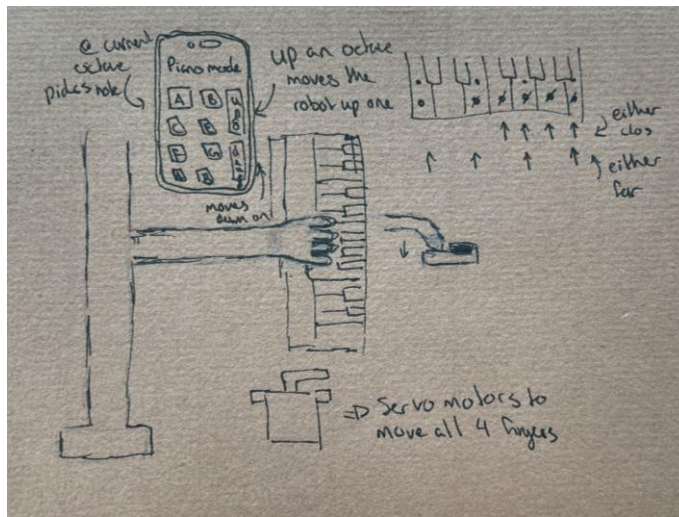 @ current
octave
picks note
Piano mode
A B
C E
F G
up an octave
moves the
robot up one
moves
down on
either
clos
either
far
=> Servo motors to
move all 4 fingers